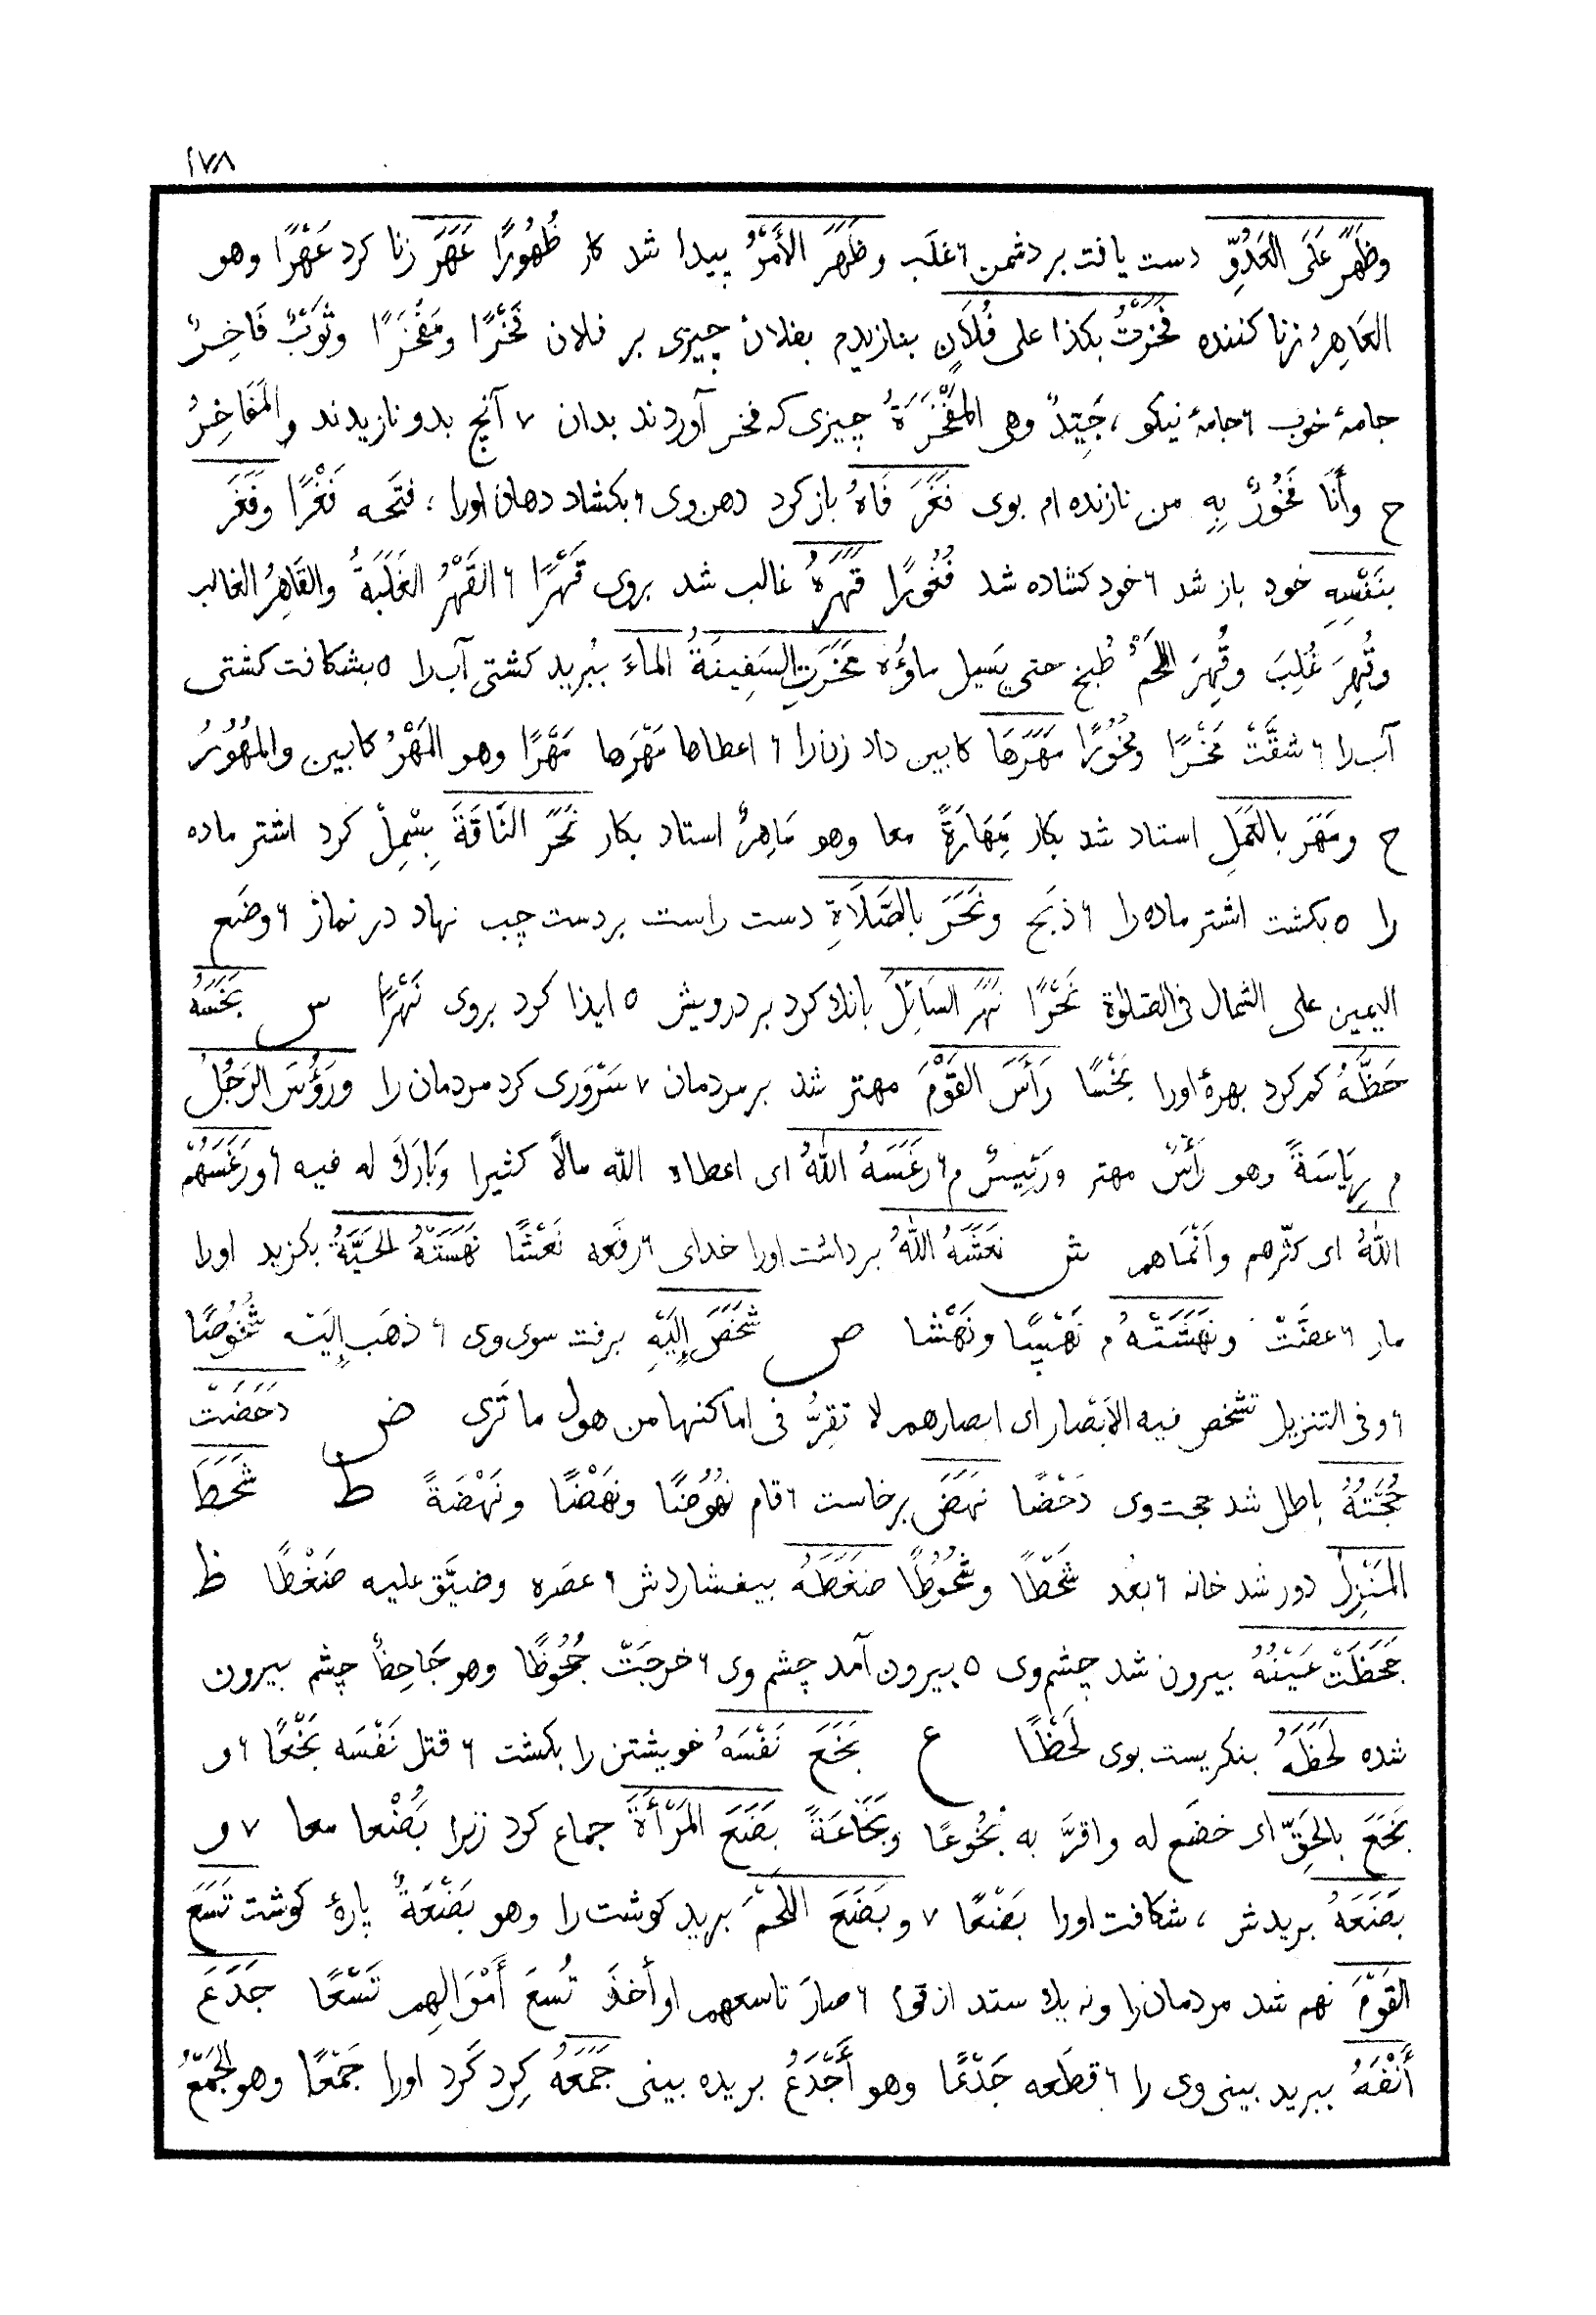 ١٧٨
وظَهَرَ عَلَى العَدُوِّ دست یافت بر دشمن ٦ غلَب وظَهَرَ الأَمْرُ پیدا شد کار ظُهُورًا عَهَرَ زنا کرد عَهْرًا وهو
العَاهِرُ زنا کننده فَخَرْتُ بکذا علی فُلَانٍ بنازیدم بفلان چیزی بر فلان فَخْرًا ومَفْخَرًا وثَوْبٌ فَاخِرٌ
جامهٔ خوب ٦ جامهٔ نیکو، جَيِّدٌ وهی المَفْخَرَةُ چیزی که فخر آوردند بدان ٧ آنچ بدو نازیدند والمَفَاخِرُ
ح وأَنَا فَخُورٌ بِهِ من نازنده ام بوی فَغَرَ فَاهُ باز کرد دهن وی ٦ بکشاد دهان اورا ؛ فتَحه فَغْرًا وفَغَرَ
بنَفْسِهِ خود باز شد ٦ خود کشاده شد فُغُورًا قَهَرَهُ غالب شد بروی قَهْرًا ٦ القَهْرُ الغَلَبَةُ والقَاهِرُ الغالب
وقُهِرَ غُلِبَ وقُهِرَ اللحَمُ طُبخ حتی یَسیل ماؤُه مَخَرَتِ السَفِينَةُ الماءَ ببُرید کشتی آب را ٥ بشکافت کشتی
آب را ٦ شقَّتْ مَخْرًا ومُخُورًا مَهَرَهَا کابین داد زن را ٦ اعطاها مَهْرَها مَهْرًا وهو المَهْرُ کابین والمهُورُ
ح ومَهَرَ بالعَمَلِ استاد شد بکار مَهَارَةً معا وهو مَاهِرٌ استاد بکار نَحَرَ النَّاقَةَ بِسْمِلْ کرد اشتر ماده
را ٥ بکشت اشتر ماده را ٦ ذبَح ونَحَرَ بالصَّلَاةِ دست راست بر دست چپ نهاد در نماز ٦ وضَع
الیمین علی الشمال فی الصلوٰة نَحْرًا نَهَرَ السَائِلَ بانك کرد بر درویش ٥ ایذا کرد بروی نَهْرًا س بَخَسَهُ
حَظَّهُ کم کرد بهرهٔ اورا بَخْسًا رَأَسَ القَوْمَ مهتر شد بر مردمان ٧ سَرْوَری کرد مردمان را ورَؤُسَ الرَجُلُ
م رِیَاسَةً وهو رَأْسٌ مهتر ورَئِيسٌ م ٦ رَغَسَهُ اللهُ ای اعطاه الله مالاً کثیرا وَبَارَكَ له فیه ٦ ورَغَسَهُمْ
اللهُ ای کثّرهم وأَنْمَاهم ش نَعَشَهُ اللهُ برداشت اورا خدای ٦ رفَعه نَعْشًا نَهَسَتْهُ الحَيَّةُ بکزید اورا
مار ٦ عضَّتْ ونَهَشَتْهُ م نَهْسًا ونَهْشا ص شَخَصَ إِلَيْهِ برفت سوی وی ٦ ذهَب إِليْه شُخُوصًا
٦ وفی التنزیل تشخص فیه الأَبْصار ای ابصارهم لا تَقِرُّ فی اماکنها من هول ما تَری ض دَحَضَتْ
حُجَّتُهُ باطل شد حجت وی دَحْضًا نَهَضَ برخاست ٦ قام نُهُوضًا ونَهْضًا ونَهْضَةً ط شَحَطَ
المَنْزِلُ دور شد خانه ٦ بعُد شَحْطًا وشُحُوطًا ضَغَطَهُ بیفشاردش ٦ عصَره وضیَّق علیه ضَغْطًا ظ
جَحَظَتْ عَيْنُهُ بیرون شد چشم وی ٥ بیرون آمد چشم وی ٦ خرجَتْ جُحُوظًا وهو جَاحِظٌ چشم بیرون
شده لَحَظَهُ بنکریست بوی لَحْظًا ع بَخَعَ نَفْسَهُ خویشتن را بکشت ٦ قتل نَفْسَه بَخْعًا ٦ و
بَخَعَ بالحَقِّ ای خضَع له واقرَّ به بُخُوعًا وبَخَاعَةً بَضَعَ المَرْأَةَ جماع کرد زنرا بُضْعا معا ٧ و
بَضَعَهُ بریدش ، شکافت اورا بَضْعًا ٧ وبَضَعَ اللَحْمَ برید کوشت را وهو بَضْعَةٌ پارهٔ کوشت تَسَعَ
القَوْمَ نهم شد مردمان را ونه یك ستد از قوم ٦ صارَ تاسعهم او أخذَ تُسعَ أَمْوَالِهم تَسْعًا جَدَعَ
أَنْفَهُ ببرید بینی وی را ٦ قطَعه جَدْعًا وهو أَجْدَعُ بریده بینی جَمَعَهُ کِرد کَرد اورا جَمْعًا وهو الجَمْعُ